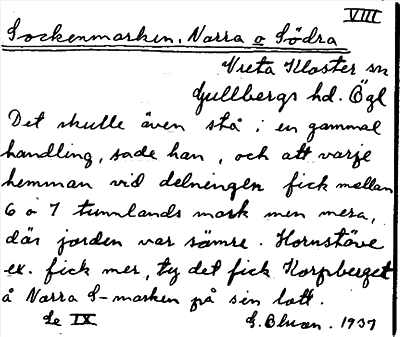 VIII
Sockenmarken, Norra o Södra
Vreta Kloster sn
Gullbergs hd. Ögl
Det skulle även stå i en gammal
handling, sade han, och att varje
hemman vid delningen fick mellan
6 o 7 tunnlands mark men mera,
där jorden var sämre. Hornstäve
ex. fick mer, ty det fick Korpberget
å Norra S-marken på sin lott.
Se IX
1937